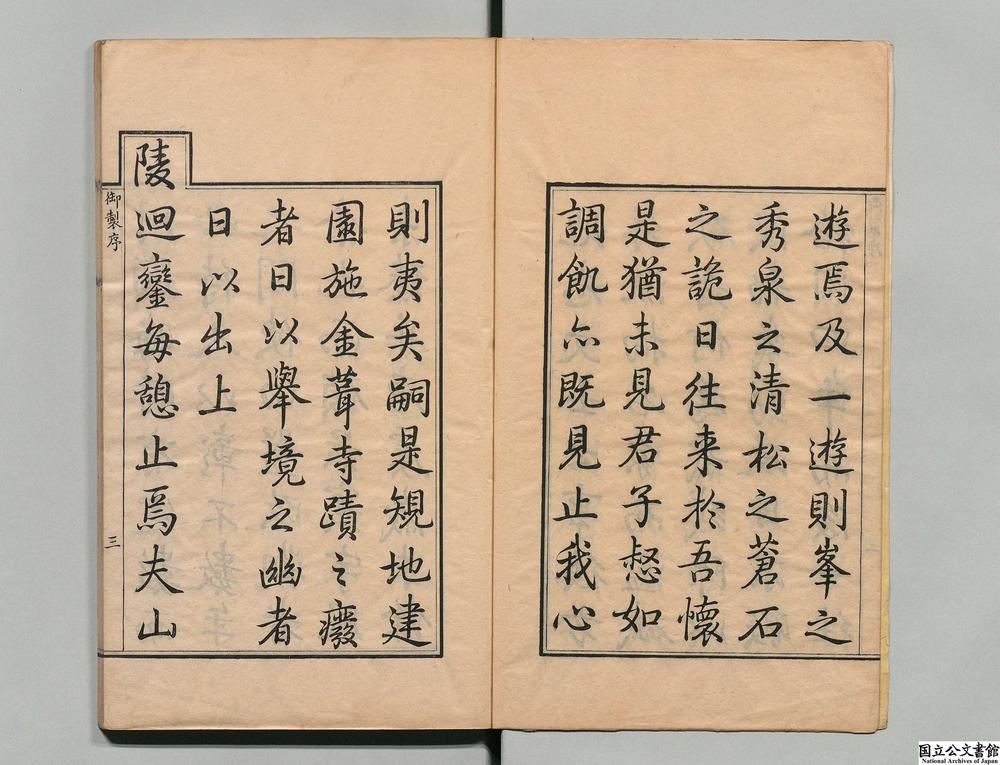 遊焉及一遊則峯之
秀泉之清松之蒼石
之詭日往来於吾懷
是猶未見君子惄如
調飢亦既見止我心
則夷矣嗣是規地建
園施金葺寺蹟之癈
者日以舉境之幽者
日以出上
陵迴鑾每憩止焉夫山
御製序
三
国立公文書館
National Archives of Japan